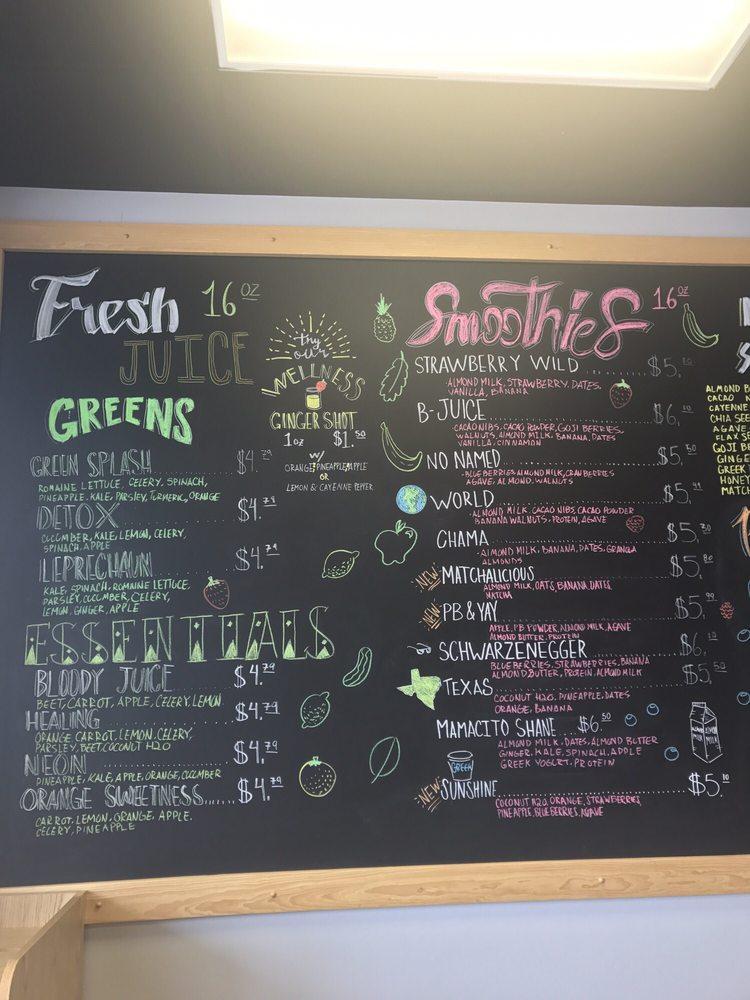 Fresh 16 OZ
JUICE
GREENS
GREEN SPLASH $4.79
ROMAINE LETTUCE, CELERY, SPINACH,
PINEAPPLE, KALE, PARSLEY, TURMERIC, ORANGE
DETOX $4.79
CUCUMBER, KALE, LEMON, CELERY,
SPINACH, APPLE
LEPRECHAUN $4.79
KALE, SPINACH, ROMAINE LETTUCE,
PARSLEY, CUCUMBER, CELERY,
LEMON, GINGER, APPLE
ESSENTIALS
BLOODY JUICE $4.79
BEET, CARROT, APPLE, CELERY, LEMON
HEALING $4.79
ORANGE CARROT, LEMON, CELERY,
PARSLEY, BEET, COCONUT H2O
NEON $4.79
PINEAPPLE, KALE, APPLE, ORANGE, CUCUMBER
ORANGE SWEETNESS $4.79
CARROT, LEMON, ORANGE, APPLE,
CELERY, PINEAPPLE
try
our
WELLNESS
GINGER SHOT
1oz $1.50
w/
ORANGE, PINEAPPLE, APPLE
OR
LEMON & CAYENNE PEPPER
Smoothies 16 OZ
STRAWBERRY WILD $5.
ALMOND MILK, STRAWBERRY, DATES,
VANILLA, BANANA
B-JUICE $6.
CACAO NIBS, CACAO POWDER, GOJI BERRIES,
WALNUTS, ALMOND MILK, BANANA, DATES
VANILLA, CINNAMON
NO NAMED $5.50
BLUEBERRIES, ALMOND MILK, CRANBERRIES
AGAVE, ALMOND, WALNUTS
WORLD $5.99
ALMOND MILK, CACAO NIBS, CACAO POWDER
BANANA WALNUTS, PROTEIN, AGAVE
CHAMA $5.50
ALMOND MILK, BANANA, DATES, GRANOLA
ALMONDS
NEW MATCHALICIOUS $5.80
ALMOND MILK, OATS, BANANA, DATES
MATCHA
NEW PB & YAY $5.99
APPLE, PB POWDER, ALMOND MILK, AGAVE
ALMOND BUTTER, PROTEIN
SCHWARZENEGGER $6.10
BLUEBERRIES, STRAWBERRIES, BANANA
ALMOND BUTTER, PROTEIN, ALMOND MILK
TEXAS $5.50
COCONUT H2O, PINEAPPLE, DATES
ORANGE, BANANA
MAMACITO SHANE $6.50
ALMOND MILK, DATES, ALMOND BUTTER
GINGER, KALE, SPINACH, APPLE
GREEK YOGURT, PROTEIN
GREEK
NEW SUNSHINE $5.10
COCONUT H2O, ORANGE, STRAWBERRIES,
PINEAPPLE, BLUEBERRIES, AGAVE
ALMOND
MILK
ALMOND
MILK
ALMOND B
CACAO N
CAYENNE
CHIA SEE
AGAVE
FLAX S
GOJI BE
GINGE
GREEK
HONEY
MATC